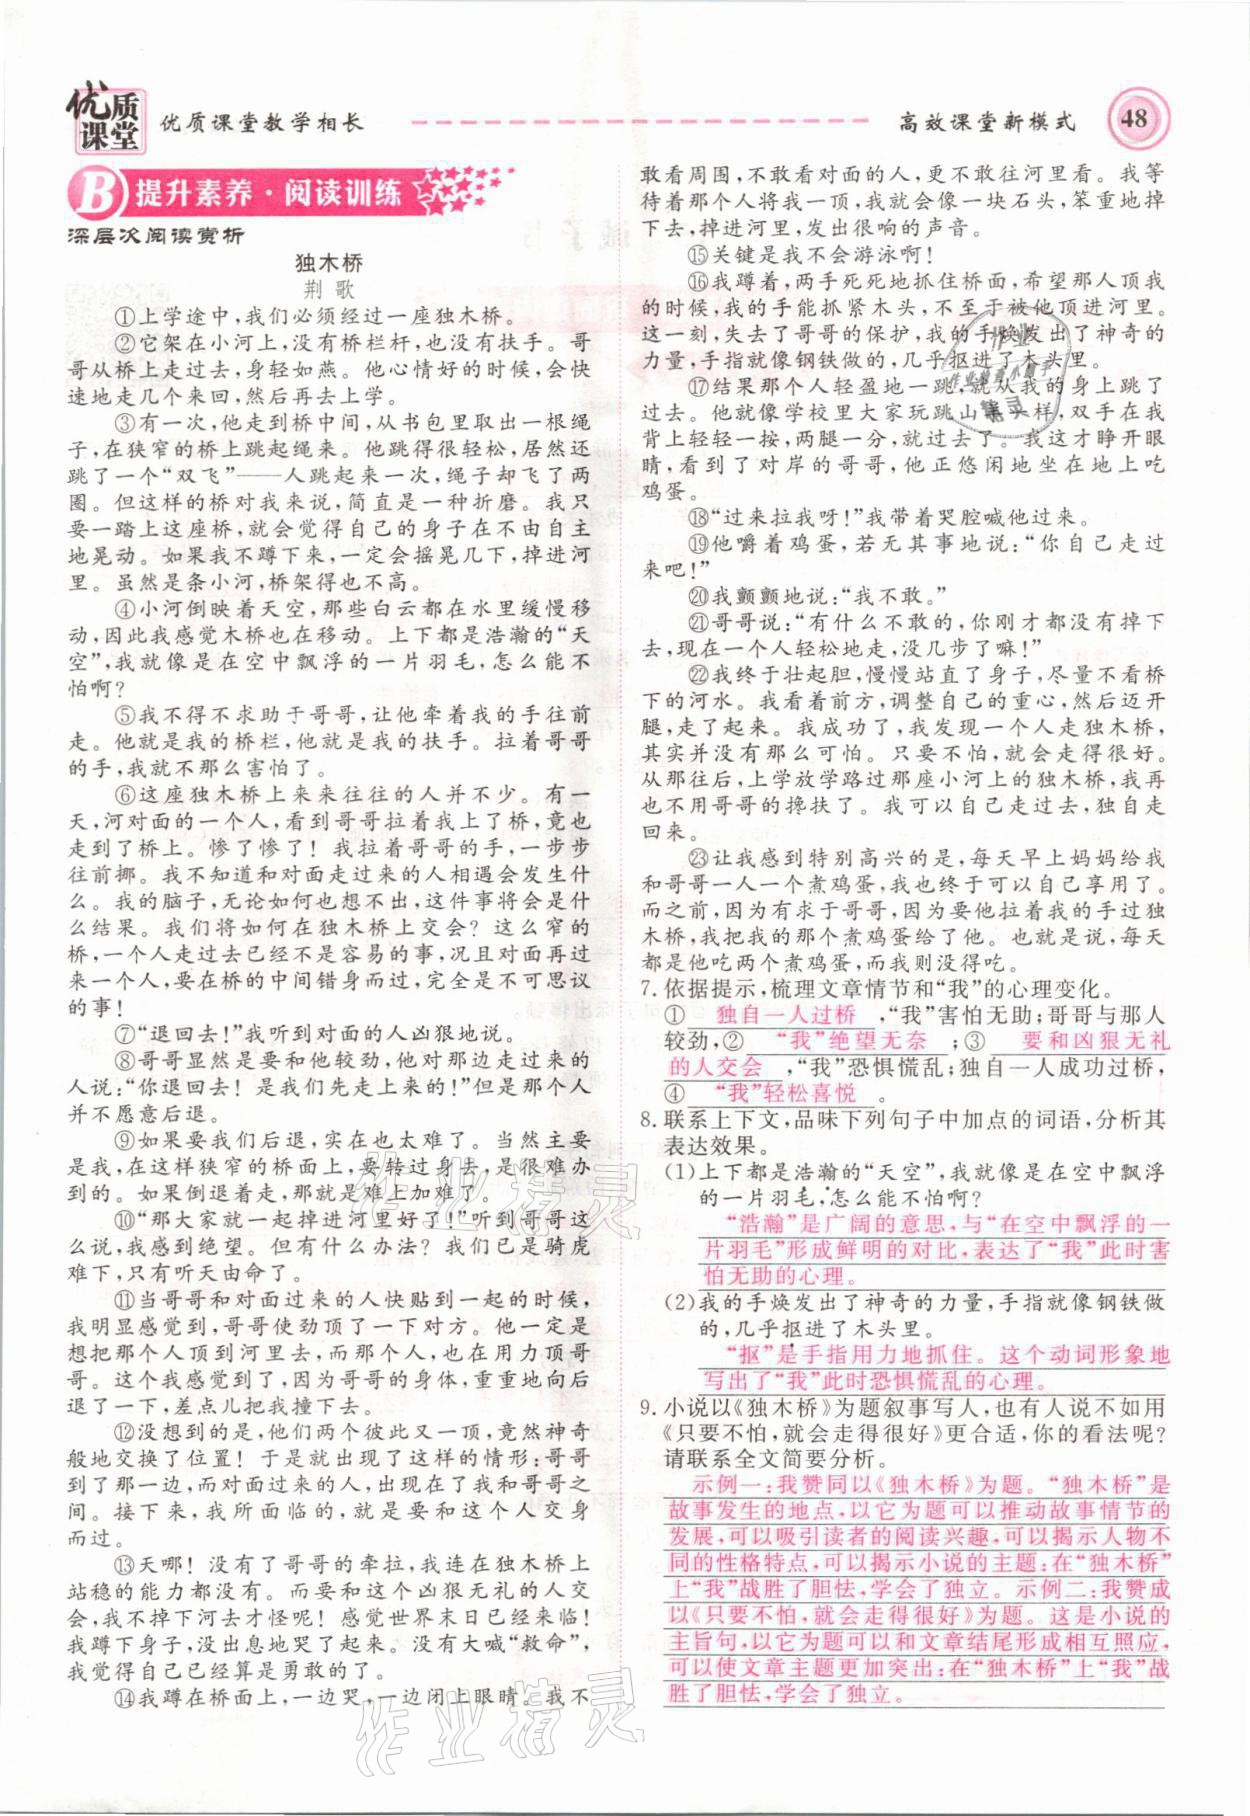 优质课堂
优质课堂教学相长
高效课堂新模式
48
B 提升素养·阅读训练
深层次阅读赏析
独木桥
荆 歌
①上学途中,我们必须经过一座独木桥。
②它架在小河上,没有桥栏杆,也没有扶手。哥
哥从桥上走过去,身轻如燕。他心情好的时候,会快
速地走几个来回,然后再去上学。
③有一次,他走到桥中间,从书包里取出一根绳
子,在狭窄的桥上跳起绳来。他跳得很轻松,居然还
跳了一个“双飞”——人跳起来一次,绳子却飞了两
圈。但这样的桥对我来说,简直是一种折磨。我只
要一踏上这座桥,就会觉得自己的身子在不由自主
地晃动。如果我不蹲下来,一定会摇晃几下,掉进河
里。虽然是条小河,桥架得也不高。
④小河倒映着天空,那些白云都在水里缓慢移
动,因此我感觉木桥也在移动。上下都是浩瀚的“天
空”,我就像是在空中飘浮的一片羽毛,怎么能不
怕啊?
⑤我不得不求助于哥哥,让他牵着我的手往前
走。他就是我的桥栏,他就是我的扶手。拉着哥哥
的手,我就不那么害怕了。
⑥这座独木桥上来来往往的人并不少。有一
天,河对面的一个人,看到哥哥拉着我上了桥,竟也
走到了桥上。惨了惨了!我拉着哥哥的手,一步步
往前挪。我不知道和对面走过来的人相遇会发生什
么。我的脑子,无论如何也想不出,这件事将会是什
么结果。我们将如何在独木桥上交会?这么窄的
桥,一个人走过去已经不是容易的事,况且对面再过
来一个人,要在桥的中间错身而过,完全是不可思议
的事!
⑦“退回去!”我听到对面的人凶狠地说。
⑧哥哥显然是要和他较劲,他对那边走过来的
人说:“你退回去!是我们先走上来的!”但是那个人
并不愿意后退。
⑨如果要我们后退,实在也太难了。当然主要
是我,在这样狭窄的桥面上,要转过身子,是很难办
到的。如果倒退着走,那就是难上加难了。
⑩“那大家就一起掉进河里好了!”听到哥哥这
么说,我感到绝望。但有什么办法?我们已是骑虎
难下,只有听天由命了。
⑪当哥哥和对面过来的人快贴到一起的时候,
我明显感觉到,哥哥使劲顶了一下对方。他一定是
想把那个人顶到河里去,而那个人,也在用力顶哥
哥。这个我感觉到了,因为哥哥的身体,重重地向后
退了一下,差点儿把我撞下去。
⑫没想到的是,他们两个彼此又一顶,竟然神奇
般地交换了位置!于是就出现了这样的情形:哥哥
到了那一边,而对面过来的人,出现在了我和哥哥之
间。本来,我所面临的,就是要和这个人交身
而过。
⑬天哪!没有了哥哥的牵拉,我连在独木桥上
站稳的能力都没有。而要和这个凶狠无礼的人交
会,我不掉下河去才怪呢!感觉世界末日已经来临!
我蹲下身子,没出息地哭了起来。没有大喊“救命”,
我觉得自己已经算是勇敢的了。
⑭我蹲在桥面上,一边哭,一边闭上眼睛。我不
敢看周围,不敢看对面的人,更不敢往河里看。我等
待着那个人将我一顶,我就会像一块石头,笨重地掉
下去,掉进河里,发出很响的声音。
⑮关键是我不会游泳啊!
⑯我蹲着,两手死死地抓住桥面,希望那人顶我
的时候,我的手能抓紧木头,不至于被他顶进河里。
这一刻,失去了哥哥的保护,我的手焕发出了神奇的
力量,手指就像钢铁做的,几乎抠进了木头里。
⑰结果那个人轻盈地一跳,就从我的身上跳了
过去。他就像学校里大家玩跳山羊一样,双手在我
背上轻轻一按,两腿一分,就过去了。我这才睁开眼
睛,看到了对岸的哥哥,他正悠闲地坐在地上吃
鸡蛋。
⑱“过来拉我呀!”我带着哭腔喊他。
⑲他嚼着鸡蛋,若无其事地说:“你自己走过
来吧!”
⑳我颤颤地说:“我不敢。”
㉑哥哥说:“有什么不敢的,你刚才都没有掉
下去,现在一个人轻松地走,没几步了嘛!”
㉒我终于壮起胆,慢慢站直了身子,尽量不看桥
下的河水。我看着前方,调整自己的重心,然后迈开
腿,走了起来。我成功了,我发现一个人走独木桥,
其实并没有那么可怕。只要不怕,就会走得很好。
从那往后,上学放学路过那座小河上的独木桥,我再
也不用哥哥的搀扶了。我可以自己走过去,独自走
回来。
㉓让我感到特别高兴的是,每天早上妈妈给我
和哥哥一人一个煮鸡蛋,我也终于可以自己享用了。
而之前,因为有求于哥哥,因为要他拉着我的手过独
木桥,我把我的那个煮鸡蛋给了他。也就是说,每天
都是他吃两个煮鸡蛋,而我则没得吃。
7. 依据提示,梳理文章情节和“我”的心理变化。
① 独自一人过桥 ,“我”害怕无助;哥哥与那人
较劲,② “我”绝望无奈 ;③ 要和凶狠无礼
的人交会 ,“我”恐惧慌乱;独自一人成功过桥,
④ “我”轻松喜悦 。
8. 联系上下文,品味下列句子中加点的词语,分析其
表达效果。
(1)上下都是浩瀚的“天空”,我就像是在空中飘浮
的一片羽毛,怎么能不怕啊?
“浩瀚”是广阔的意思,与“在空中飘浮的一
片羽毛”形成鲜明的对比,表达了“我”此时害
怕无助的心理。
(2)我的手焕发出了神奇的力量,手指就像钢铁做
的,几乎抠进了木头里。
“抠”是手指用力地抓住。这个动词形象地
写出了“我”此时恐惧慌乱的心理。
9. 小说以《独木桥》为题叙事写人,也有人说不如用
《只要不怕,就会走得很好》更合适,你的看法呢?
请联系全文简要分析。
示例一:我赞同以《独木桥》为题。“独木桥”是
故事发生的地点,以它为题可以推动故事情节的
发展,可以吸引读者的阅读兴趣,可以揭示人物不
同的性格特点,可以揭示小说的主题:在“独木桥”
上“我”战胜了胆怯,学会了独立。示例二:我赞成
以《只要不怕,就会走得很好》为题。这是小说的
主旨句,以它为题可以和文章结尾形成相互照应,
可以使文章主题更加突出:在“独木桥”上“我”战
胜了胆怯,学会了独立。
作业精灵
作业精灵